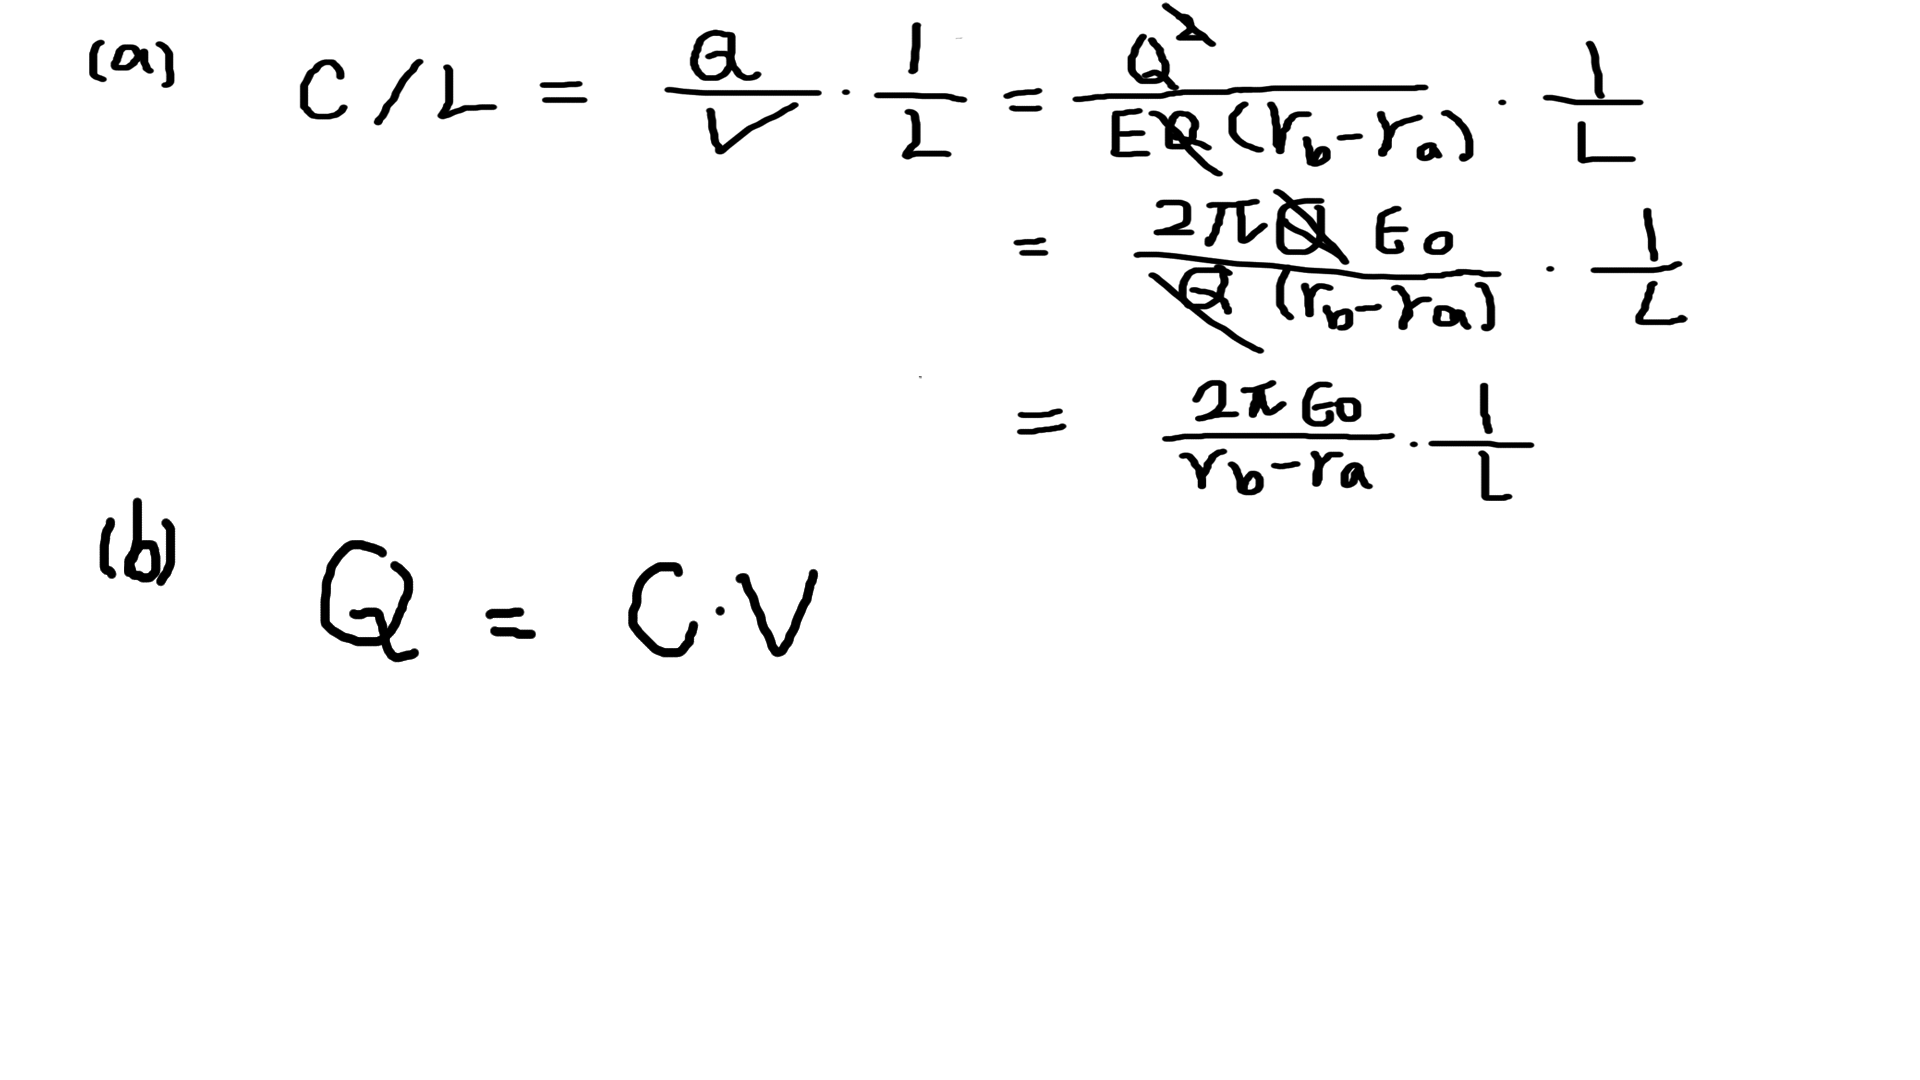 (a) C/L = Q/V · 1/L = Q²/EQ(r_b-r_a) · 1/L
= 2πQε₀/Q(r_b-r_a) · 1/L
= 2πε₀/r_b-r_a · 1/L
(b) Q = C·V